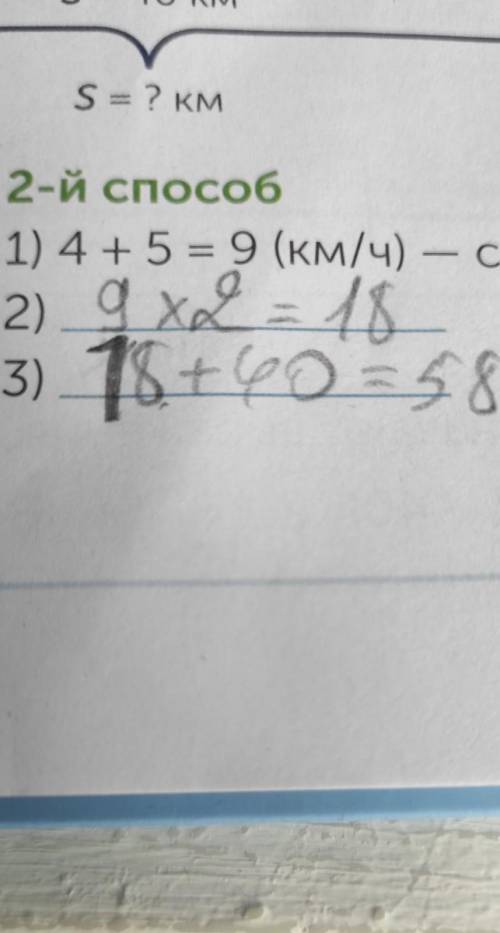 S = ? км
2-й способ
1) 4 + 5 = 9 (км/ч) — с
2) 9 x 2 = 18
3) 18 + 40 = 58